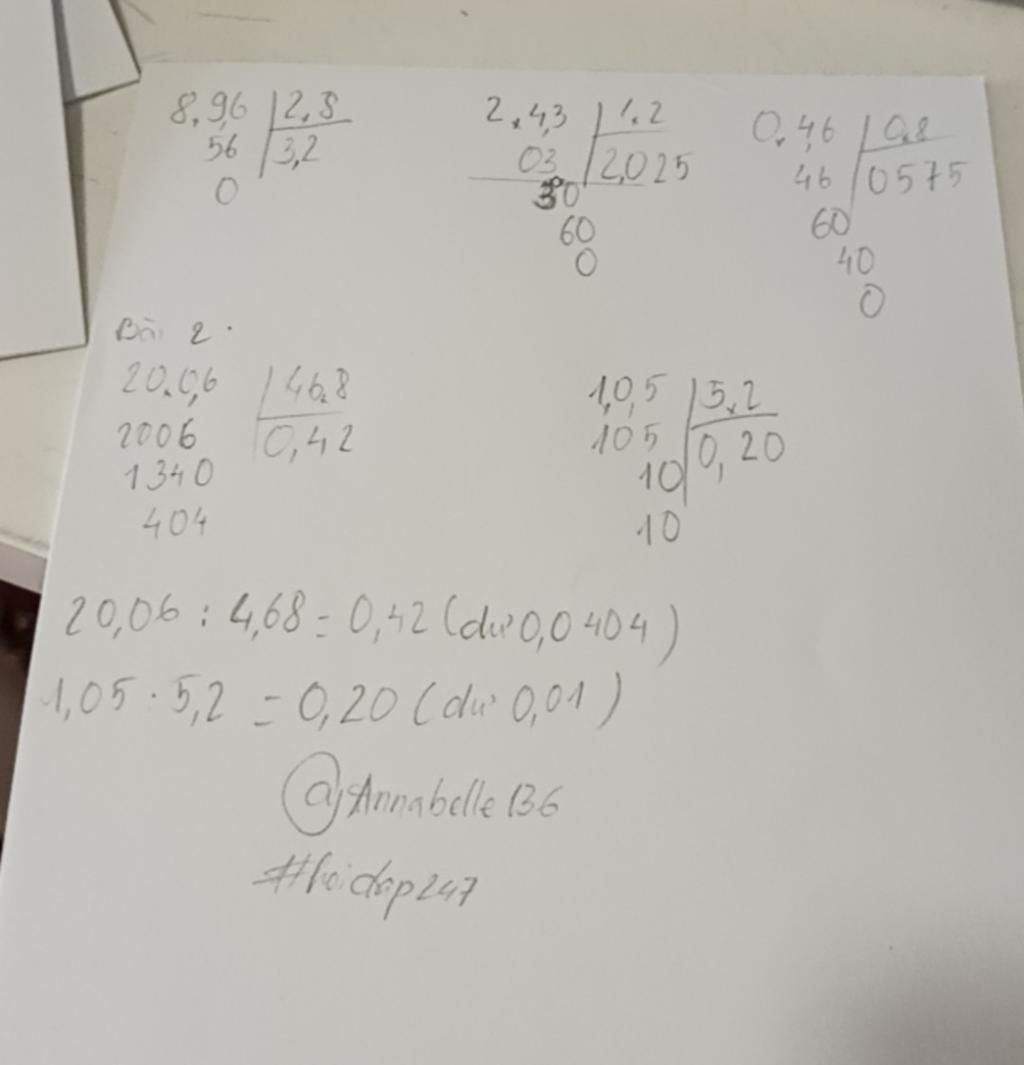 8,9,6 2,8
56 3,2
0
2,4,3 1,2
03 2,025
30
60
0
0,4,6 0,8
46 0575
60
40
0
Bài 2.
20,0,6 46,8
2006 0,42
1340
404
1,0,5 5,2
105 0,20
10
10
20,06 : 4,68 = 0,42 (dư 0,0404)
1,05 : 5,2 = 0,20 (dư 0,01)
@Annabelle136
#hoidap247